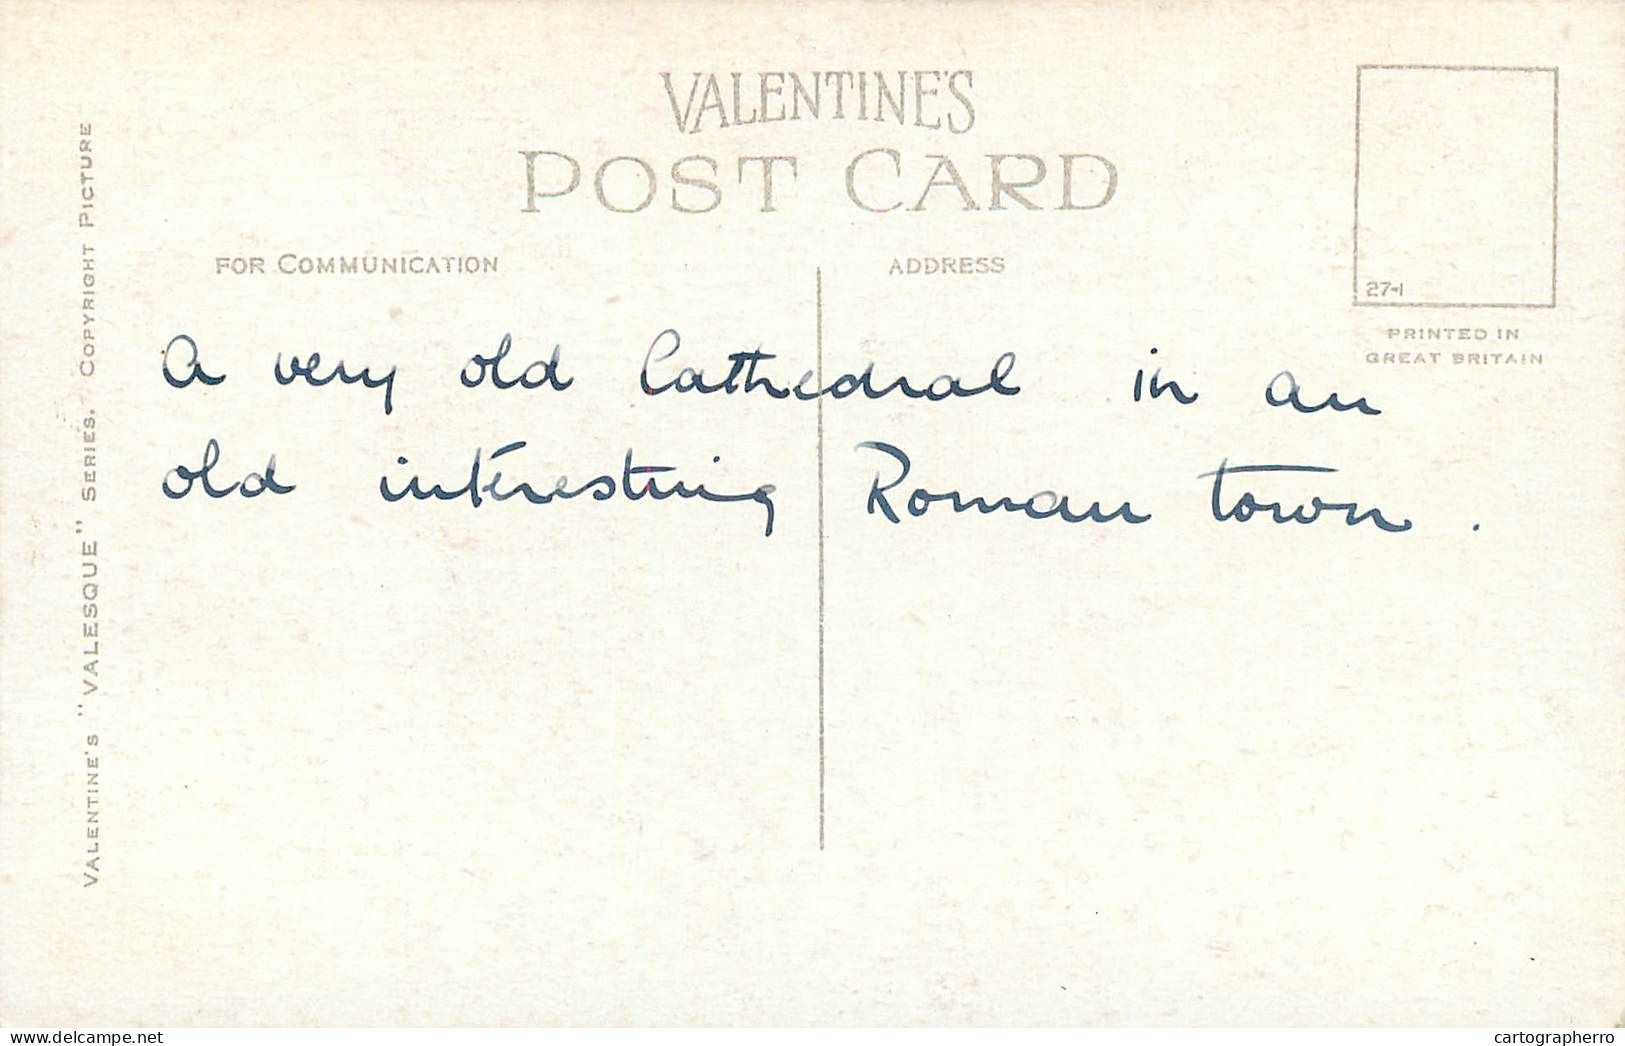 VALENTINE'S
POST CARD
FOR COMMUNICATION
ADDRESS
27-1
PRINTED IN
GREAT BRITAIN
VALENTINE'S "VALESQUE" SERIES. COPYRIGHT PICTURE
A very old Cathedral in an
old interesting Roman town.
delcampe.net
cartographerro